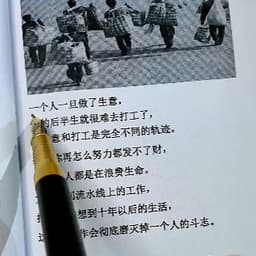 一个人一旦做了生意，
的后半生就很难去打工了，
意和打工是完全不同的轨迹。
你再怎么努力都发不了财，
人都是在浪费生命。
流水线上的工作，
想到十年以后的生活，
作会彻底磨灭掉一个人的斗志。